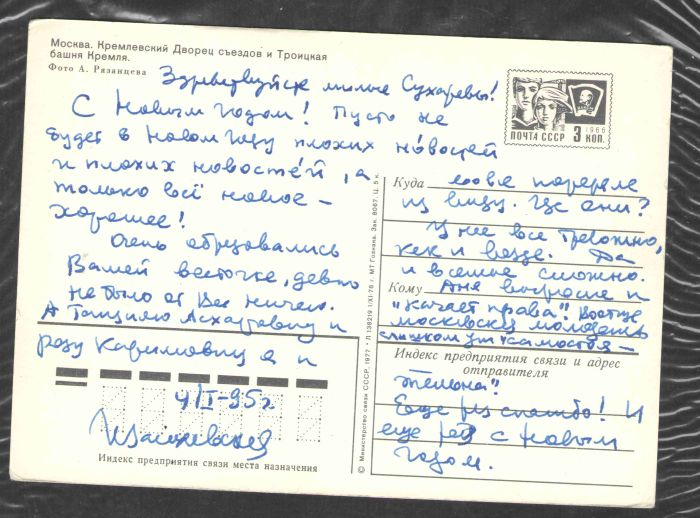 Москва. Кремлевский Дворец съездов и Троицкая
башня Кремля.
Фото А. Рязанцева
Здравствуйте милые Сухаревы!
С Новым годом! Пусть не
будет в Новом году плохих новостей
и плохих новостей, а
только всё новое –
хорошее!
Очень обрадовались
Вашей весточке, давно
не было от Вас ничего.
А Танзилю Асхатовну и
розу Каримовну я и
4/I-95г.
Индекс предприятия связи места назначения
© Министерство связи СССР. 1977 • Л 138219 1/XI-76 г. МТ Гознака. Зак. 8067. Ц. 5 к.
ПОЧТА СССР 3 КОП.
1966
ВЛКСМ
Куда
совсе потеряла
из виду. Где они?
У нее все тревожно,
как и везде. Да
и в семье сложно.
Кому
Аня выросла и
"качает права". Вообще
московская молодежь
слишком уж "самостоя–
Индекс предприятия связи и адрес
отправителя
тельна"
Еще раз спасибо! И
еще раз с Новым
годом.